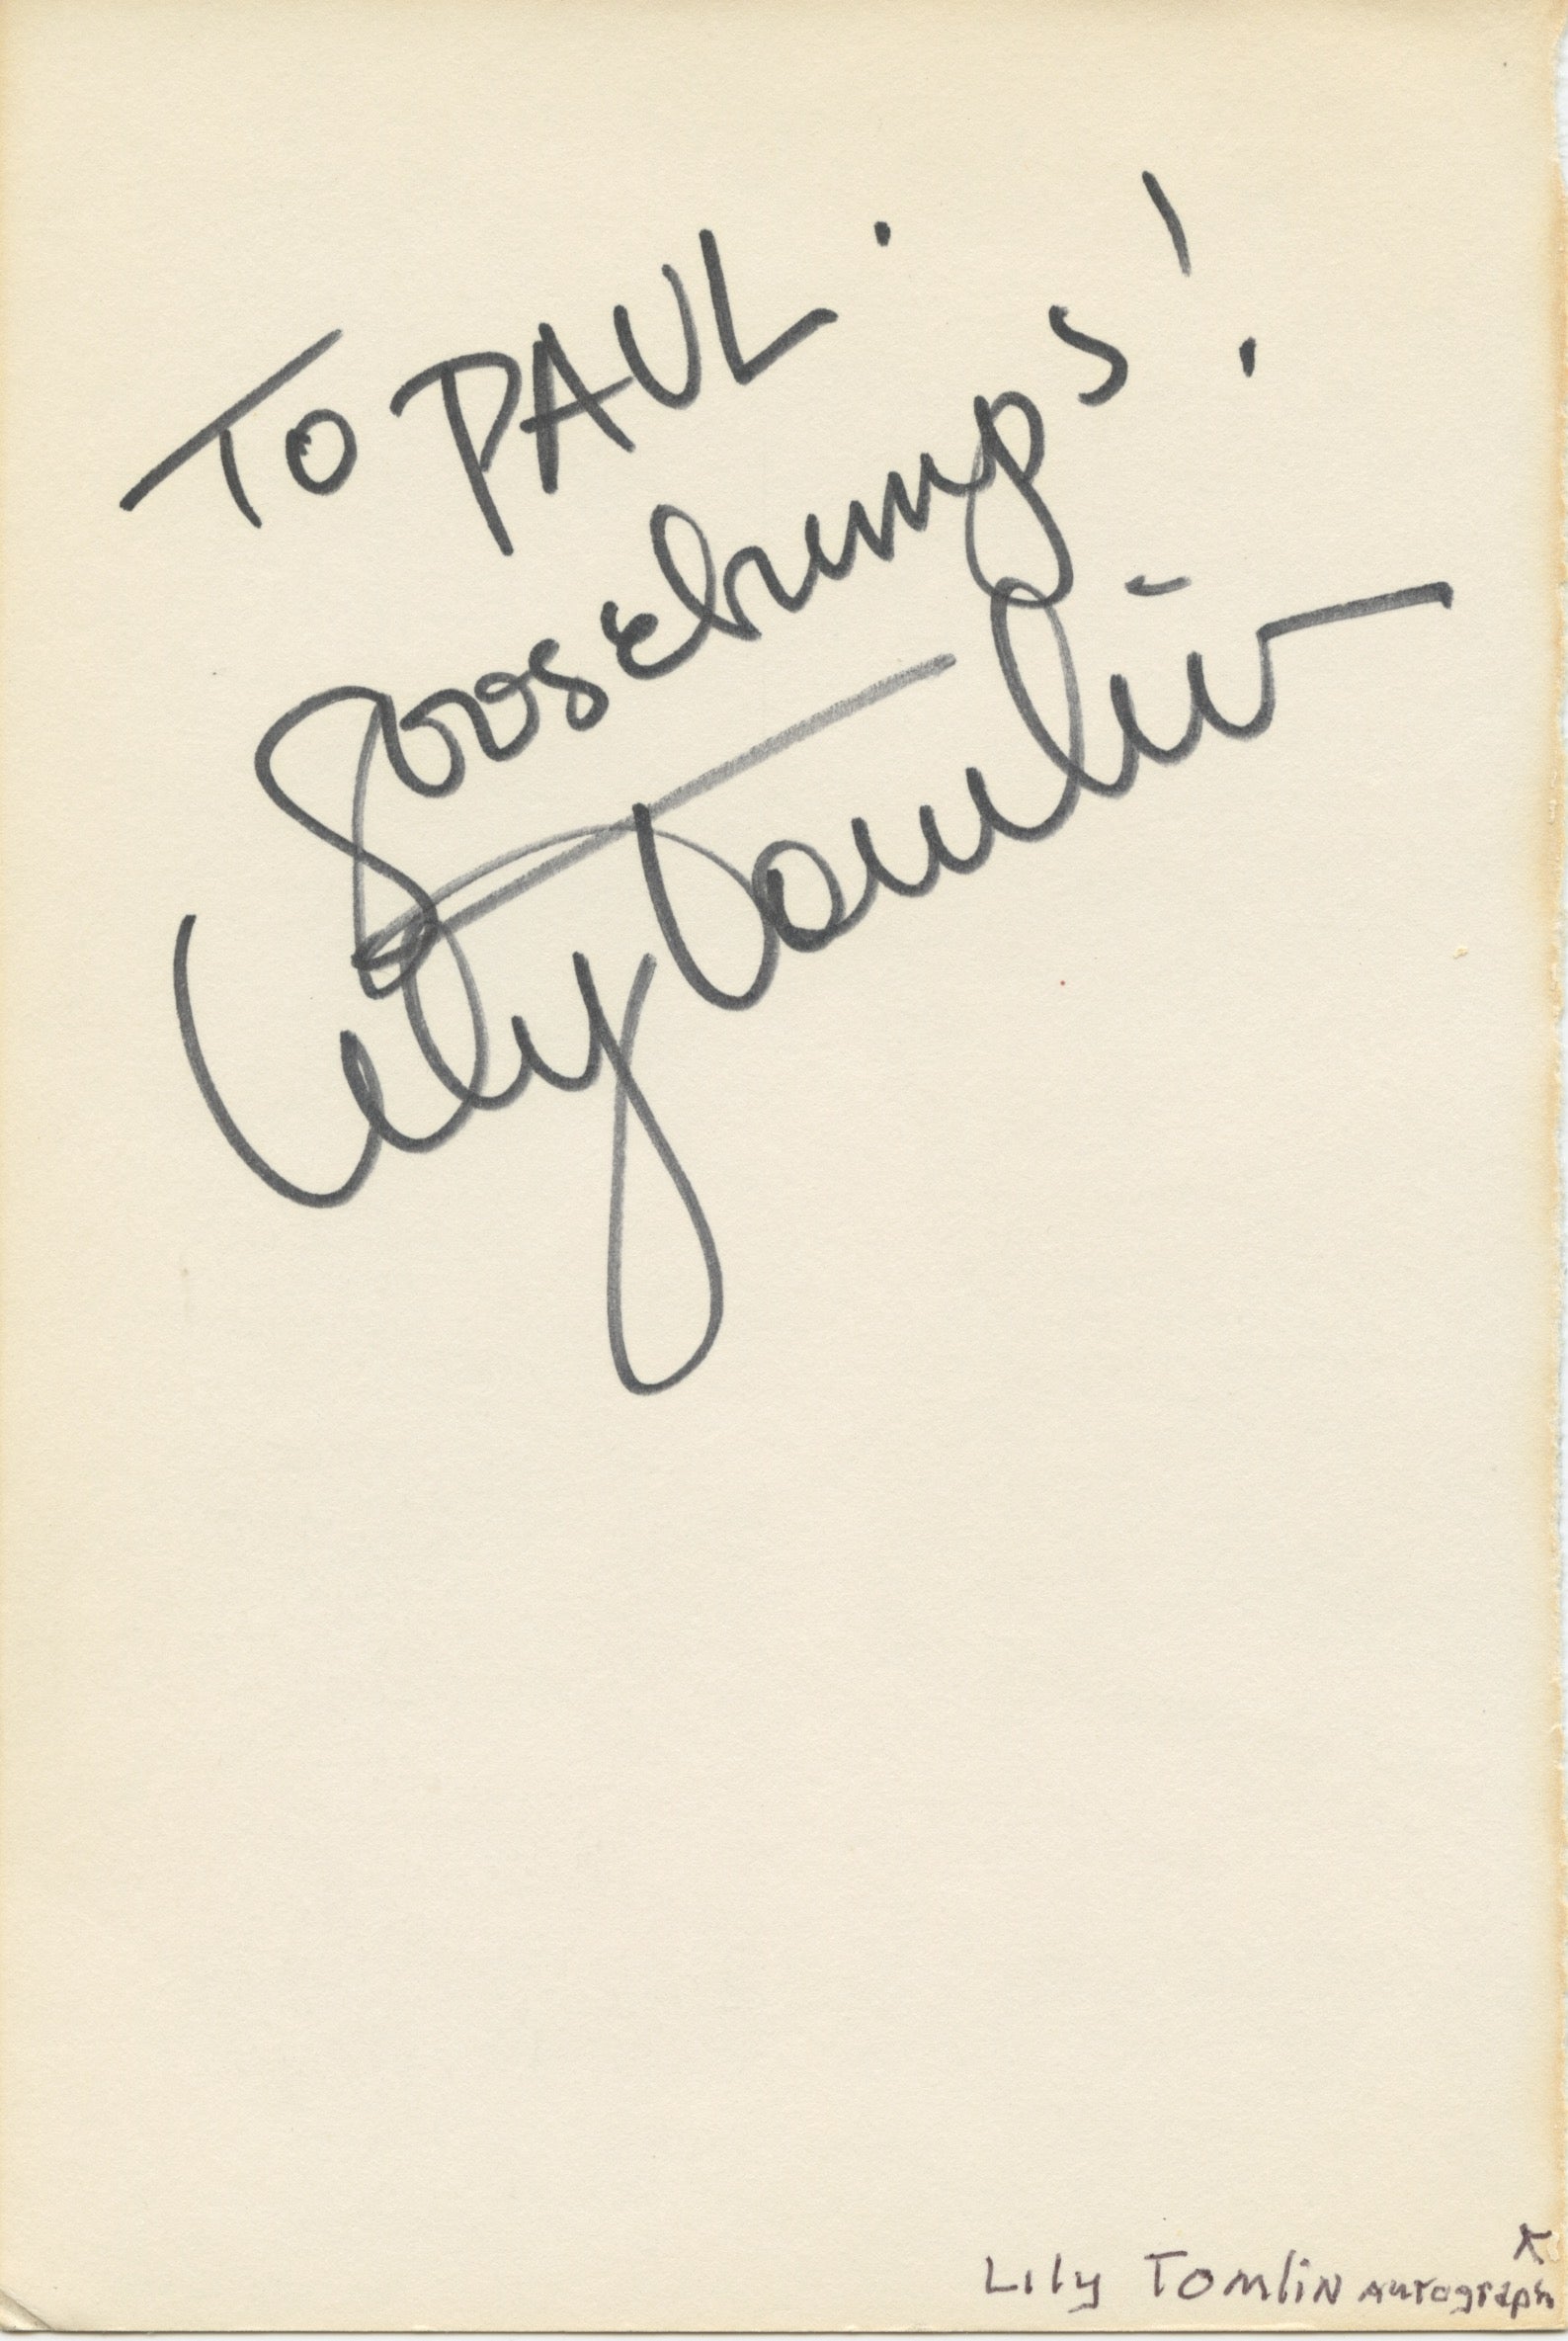 TO PAUL.
Goosebumps!
Lily Tomlin
Lily Tomlin Autograph